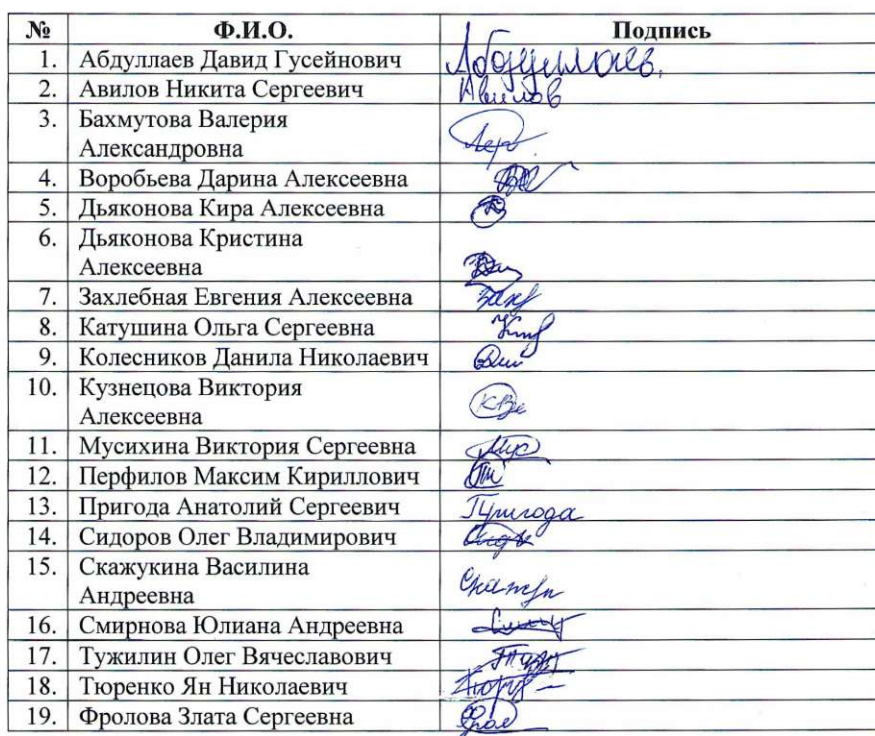 № Ф.И.О. Подпись
1. Абдуллаев Давид Гусейнович Абдуллаев.
2. Авилов Никита Сергеевич Авилов
3. Бахмутова Валерия
Александровна
4. Воробьева Дарина Алексеевна
5. Дьяконова Кира Алексеевна
6. Дьяконова Кристина
Алексеевна
7. Захлебная Евгения Алексеевна
8. Катушина Ольга Сергеевна
9. Колесников Данила Николаевич
10. Кузнецова Виктория
Алексеевна
11. Мусихина Виктория Сергеевна
12. Перфилов Максим Кириллович
13. Пригода Анатолий Сергеевич Пригода
14. Сидоров Олег Владимирович
15. Скажукина Василина
Андреевна
16. Смирнова Юлиана Андреевна
17. Тужилин Олег Вячеславович
18. Тюренко Ян Николаевич
19. Фролова Злата Сергеевна